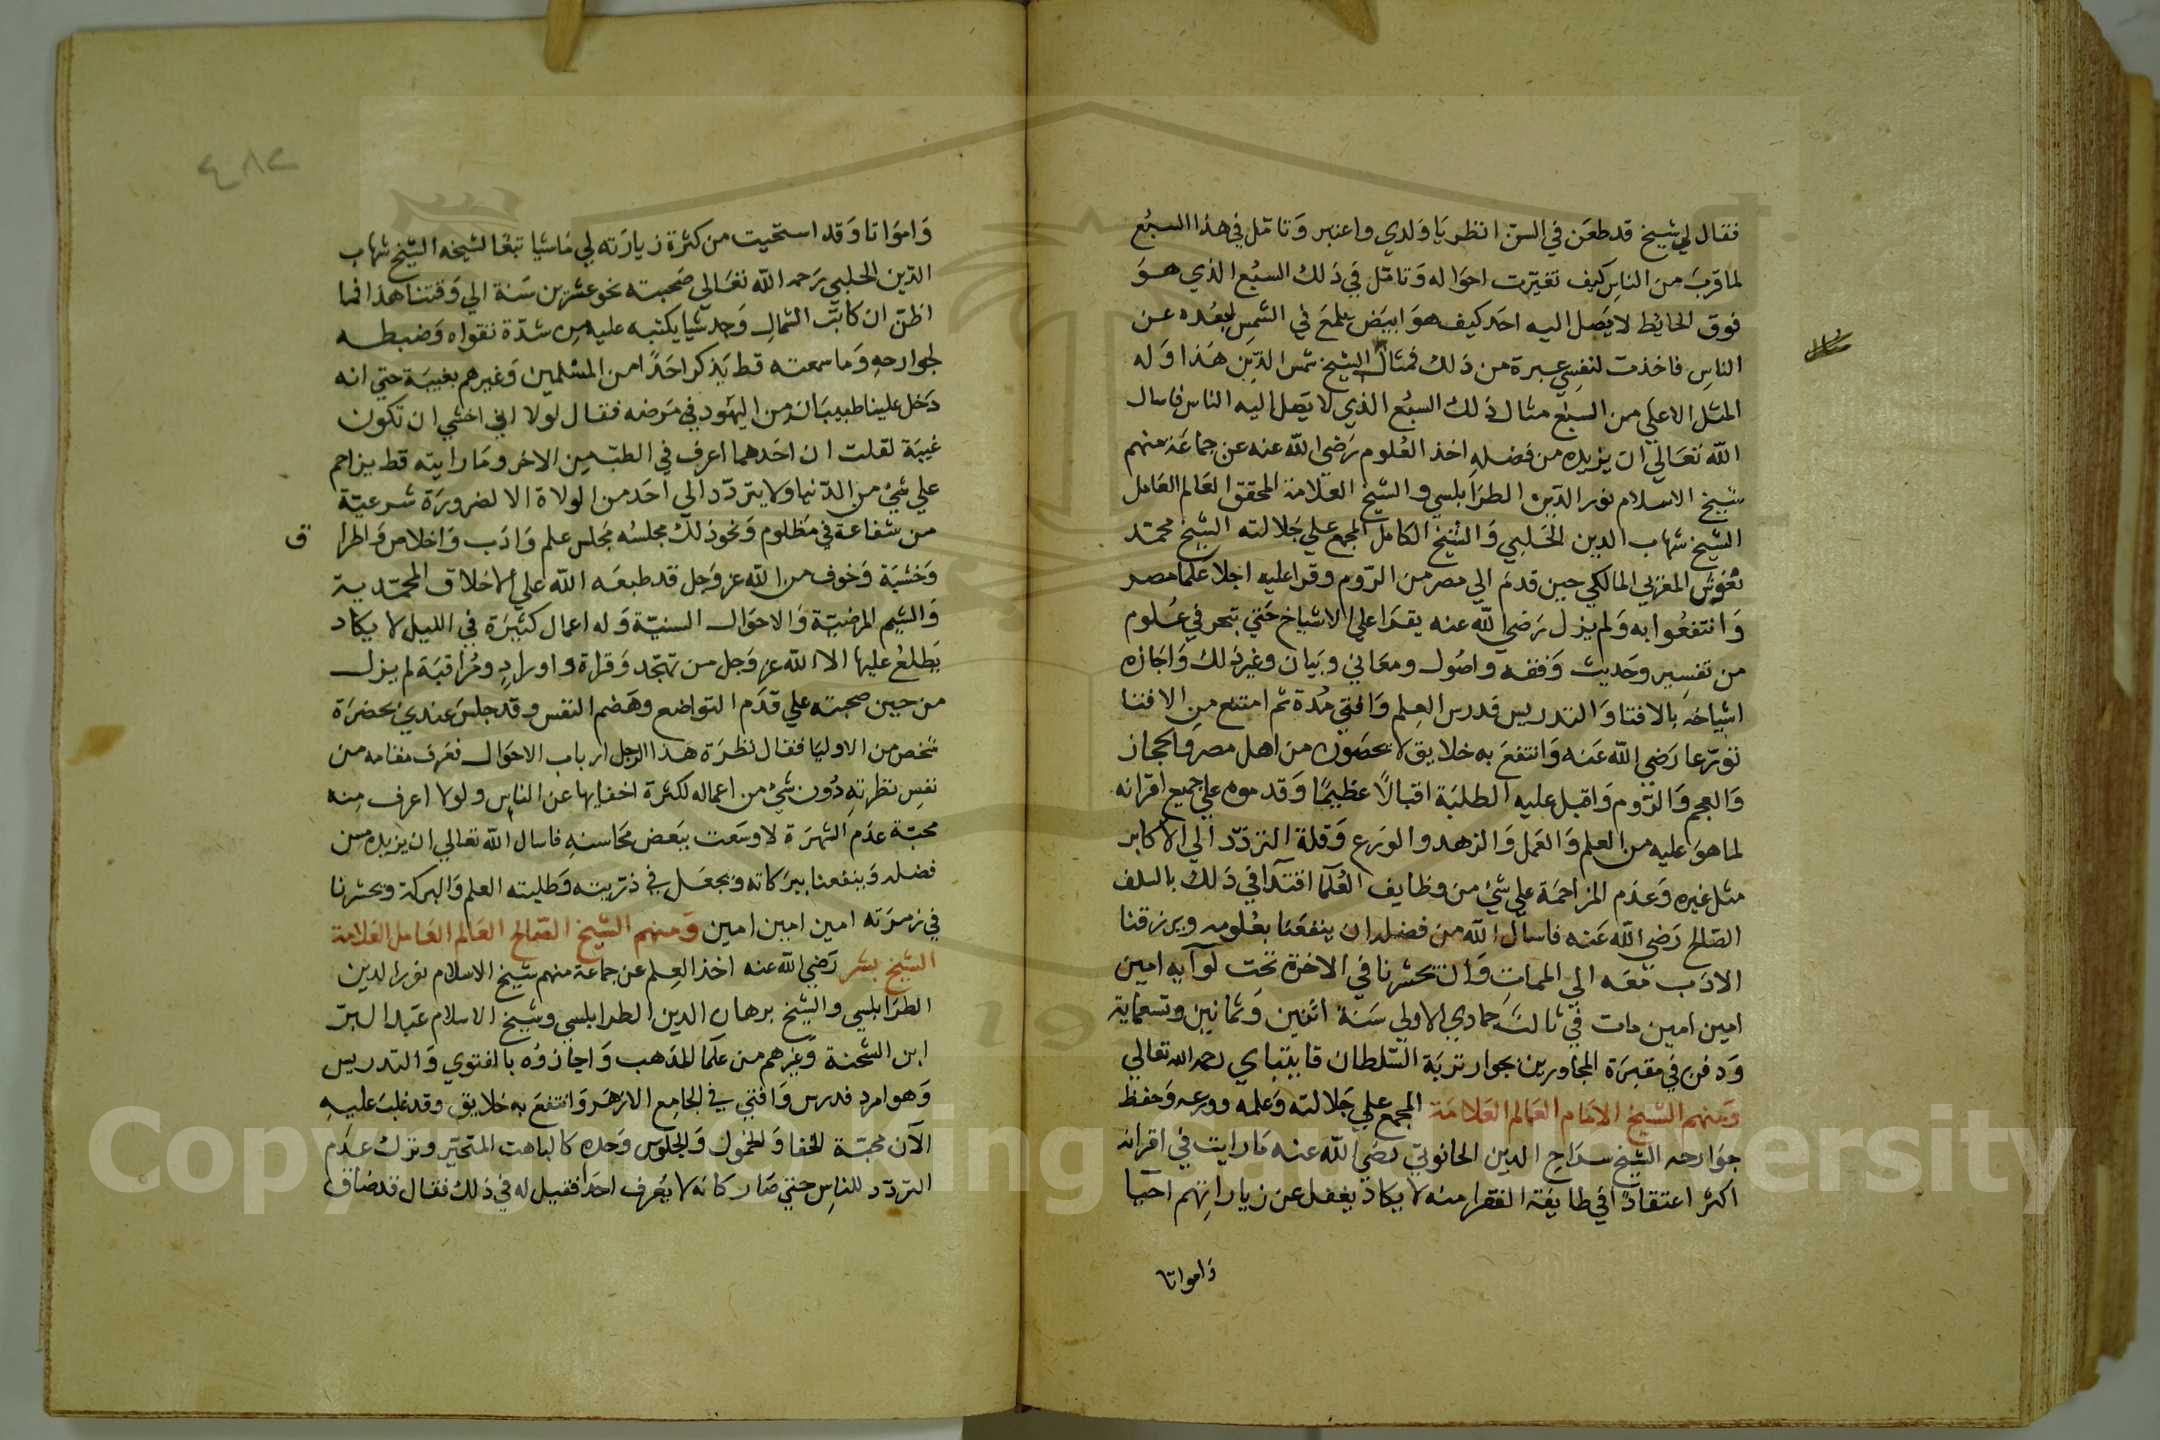 فقال لي شيخ قد طعن في السن انظر يا ولدي واعتبر وتامل في هذا السبع
لما قرب من الناس كيف تغيرت احواله وتامل في ذلك السبع الذي هو
فوق الحايط لا يصل اليه احد كيف هو ابيض يلمع في الشمس لبعده عن
الناس فاخذت لنفسي عبرة من ذلك فمثال الشيخ شمس الدين هذا وله
المثل الاعلي من السبع مثال ذلك السبع الذي لا يصل اليه الناس فاسال
الله تعالي ان يزيده من فضله اخذ العلوم رضي الله عنه عن جماعة منهم
شيخ الاسلام نور الدين الطرابلسي والشيخ العلامة المحقق العالم العامل
الشيخ شهاب الدين الحلبي والشيخ الكامل المجمع علي جلالته الشيخ محمد
مغوش المغربي المالكي حين قدم الي مصر من الروم وقرا عليه اجلا علما مصر
وانتفعوا به ولم يزل رضي الله عنه يقرا علي الاشياخ حتي تبحر في علوم
من تفسير وحديث وفقه واصول ومعاني وبيان وغير ذلك واجازه
اشياخه بالافتا والتدريس فدرس العلم وافتي مدة ثم امتنع من الافتا
تورعا رضي الله عنه وانتفع به خلايق لا يحصون من اهل مصر والحجاز
والعجم والروم واقبل عليه الطلبة اقبالا عظيما وقدموه علي جميع اقرانه
لما هو عليه من العلم والعمل والزهد والورع وقلة التردد الي الاكابر
مثل غيره وعدم المزاحمة علي شي من وظايف العلما اقتدا في ذلك بالسلف
الصالح رضي الله عنه فاسال الله من فضله ان ينفعنا بعلومه ويرزقنا
الادب معه الي الممات وان يحشرنا في الاخرة تحت لوايه امين
امين امين مات في ثالث جمادي الاولي سنة اثنين وثمانين وتسعماية
ودفن في مقبرة المجاورين بجوار تربة السلطان قايتباي رحمه الله تعالي
ومنهم الشيخ الامام العالم العلامة المجمع علي جلالته وعلمه وورعه وحفظ
جوارحه الشيخ سراج الدين الحانوتي رضي الله عنه ما رايت في اقرانه
اكثر اعتقادا في طايفة الفقرا منه لا يكاد يغفل عن زياراتهم احيا
وامواتا
٤٨٢
وامواتا وقد استحيت من كثرة زيارته لي ماشيا تبعا لشيخه الشيخ شهاب
الدين الحلبي رحمه الله تعالي صحبته نحو عشرين سنة الي وقتنا هذا فما
اظن ان كاتب الشمال وجد شيا يكتبه عليه من شدة تقواه وضبطه
لجوارحه وما سمعته قط يذكر احدا من المسلمين وغيرهم بغيبة حتي انه
دخل علينا طبيبان من اليهود في مرضه فقال لولا اني اخشي ان تكون
غيبة لقلت ان احدهما اعرف في الطب من الاخر وما رايته قط يزاحم
علي شي من الدنيا ولا يتردد الي احد من الولاة الا لضرورة شرعية
من شفاعة في مظلوم ونحو ذلك مجلسه مجلس علم وادب واخلاص واطرا ق
وخشية وخوف من الله عز وجل قد طبعه الله علي الاخلاق المحمدية
والشيم المرضية والاحوال السنية وله اعمال كثيرة في الليل لا يكاد
يطلع عليها الا الله عز وجل من تهجد وقراة واوراد ومراقبة لم يزل
من حين صحبته علي قدم التواضع وهضم النفس وقد جلس عندي بحضرة
شخص من الاوليا فقال نظرة هذا الرجل ارباب الاحوال فعرف مقامه من
نفس نظرته دون شي من اعماله لكثرة اخفايها عن الناس ولولا اعرف منه
محبة عدم الشهرة لاوسعت ببعض محاسنه فاسال الله تعالي ان يزيده من
فضله وينفعنا ببركاته ويجعل في ذريته وطلبته العلم والبركة ويحشرنا
في زمرته امين امين امين ومنهم الشيخ الصالح العالم العامل العلامة
الشيخ بشر رضي الله عنه اخذ العلم عن جماعة منهم شيخ الاسلام نور الدين
الطرابلسي والشيخ برهان الدين الطرابلسي وشيخ الاسلام عبد البر
ابن الشحنة وغيرهم من علما المذهب واجازوه بالفتوي والتدريس
وهو امرد فدرس وافتي في الجامع الازهر وانتفع به خلايق وقد غلب عليه
الآن محبة للخفا والخمول والجلوس وحده كالباهت المتحير وترك عدم
التردد للناس حتي صار كانه لا يعرف احدا فقيل له في ذلك فقال قد ضاق
Copyright © King Saud University